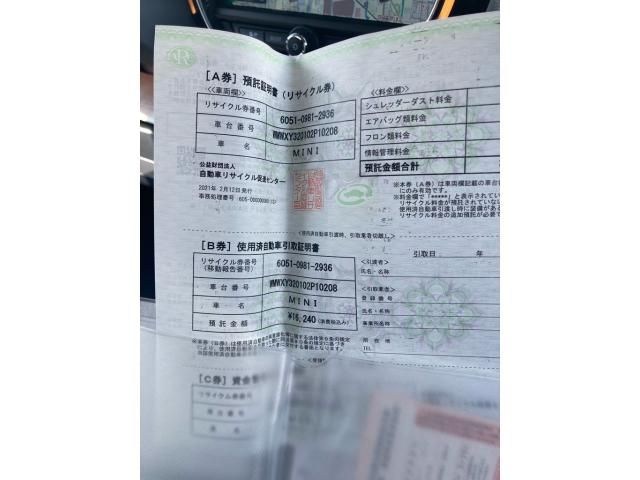 [A券] 預託証明書 (リサイクル券)
<<車両欄>>
リサイクル券番号 6051-0981-2936
車台番号 WMWXY320102P10208
車名 MINI
公益財団法人
自動車リサイクル促進センター
2021年 2月12日発行
<<料金欄>>
シュレッダーダスト料金
エアバッグ類料金
フロン類料金
情報管理料金
預託金額合計
※本券(A券)は車両欄記載の車台
にのみ有効です。
※料金欄で「*****」と表示されてい
リサイクル料金が預託されていない
使用済自動車引渡し時に装備があ
リサイクル料金の追加預託が必要で
[B券] 使用済自動車引取証明書
リサイクル券番号
(移動報告番号) 6051-0981-2936
車台番号 WMWXY320102P10208
車名 MINI
預託金額 ¥16,240 (消費税込み)
引取日: 年
<引渡者>
氏名・名称
<引取業者>
登録番号
氏名・名称
事業所名称
所在地
TEL
[C券] 資金
リサイクル券番号
車台番号
車名